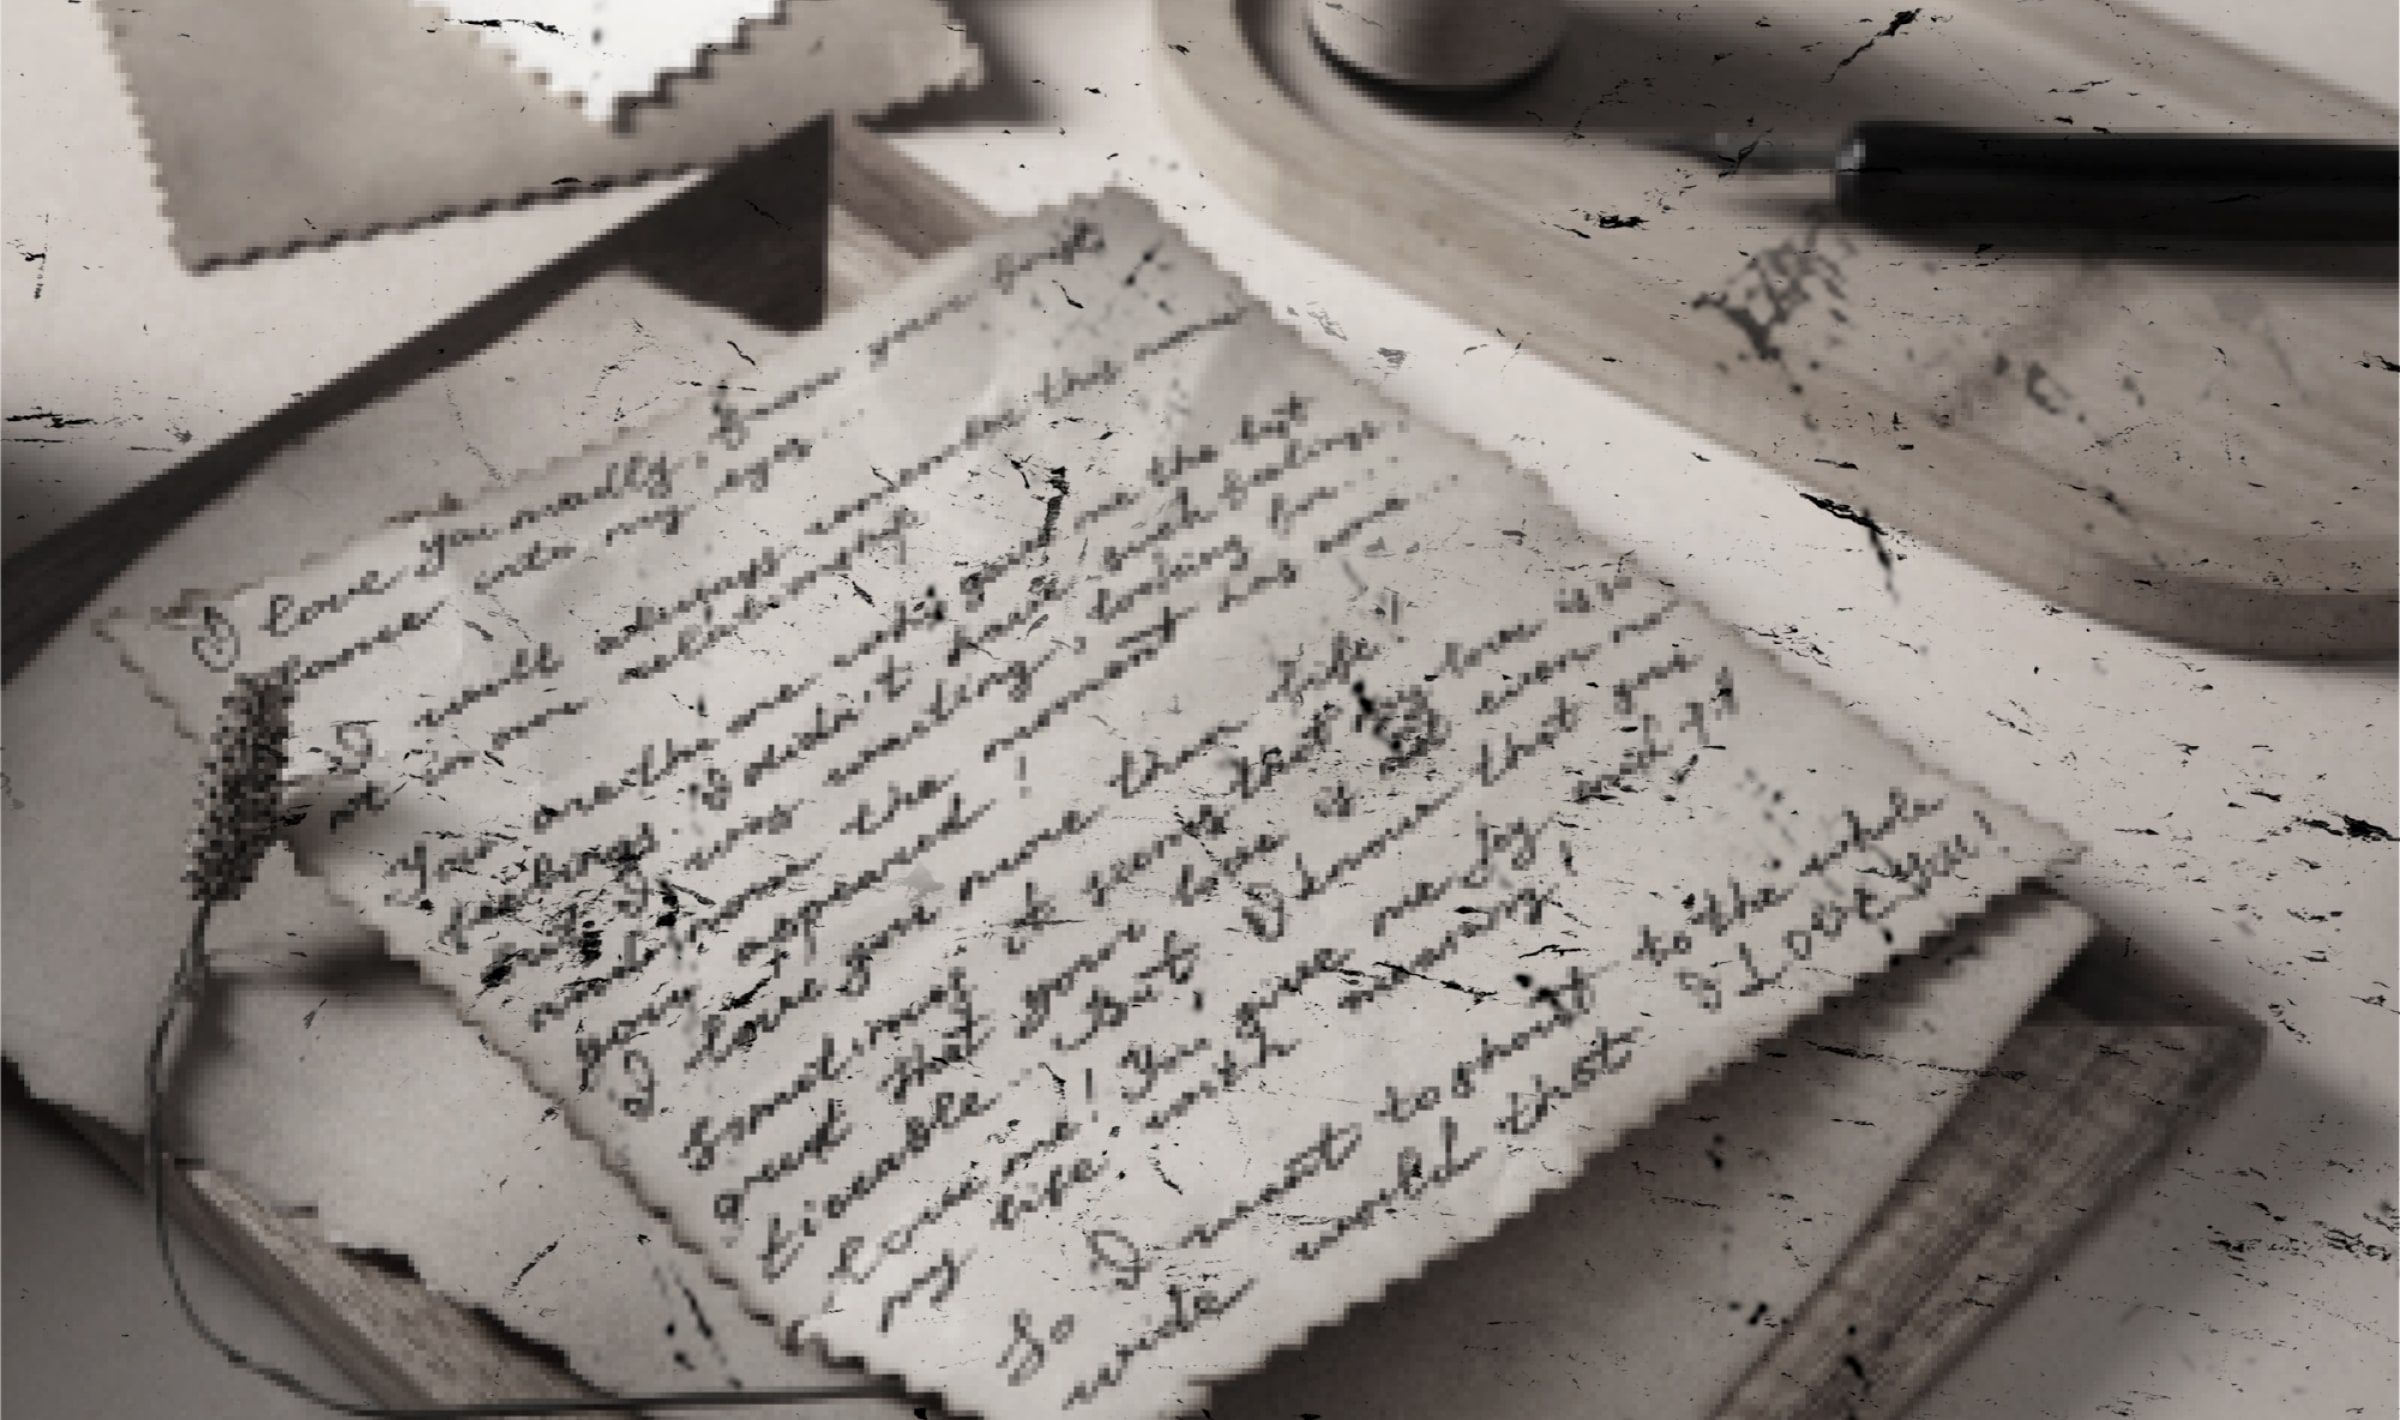 I love you madly, knows your
comes into my eyes...
I will always remember this
not in our relationship
You are the one who gave me the list
feelings. I didn't have such feelings,
But I was waiting, looking for...
and now the moment has come...
you appeared!
I love you more than life!
Sometimes it seems that my love is so
great that your love is not even no
tiseable... But I know that you
love me! You give me joy and fill
my life with meaning!
So I want to shout to the whole
wide world that I Love You!